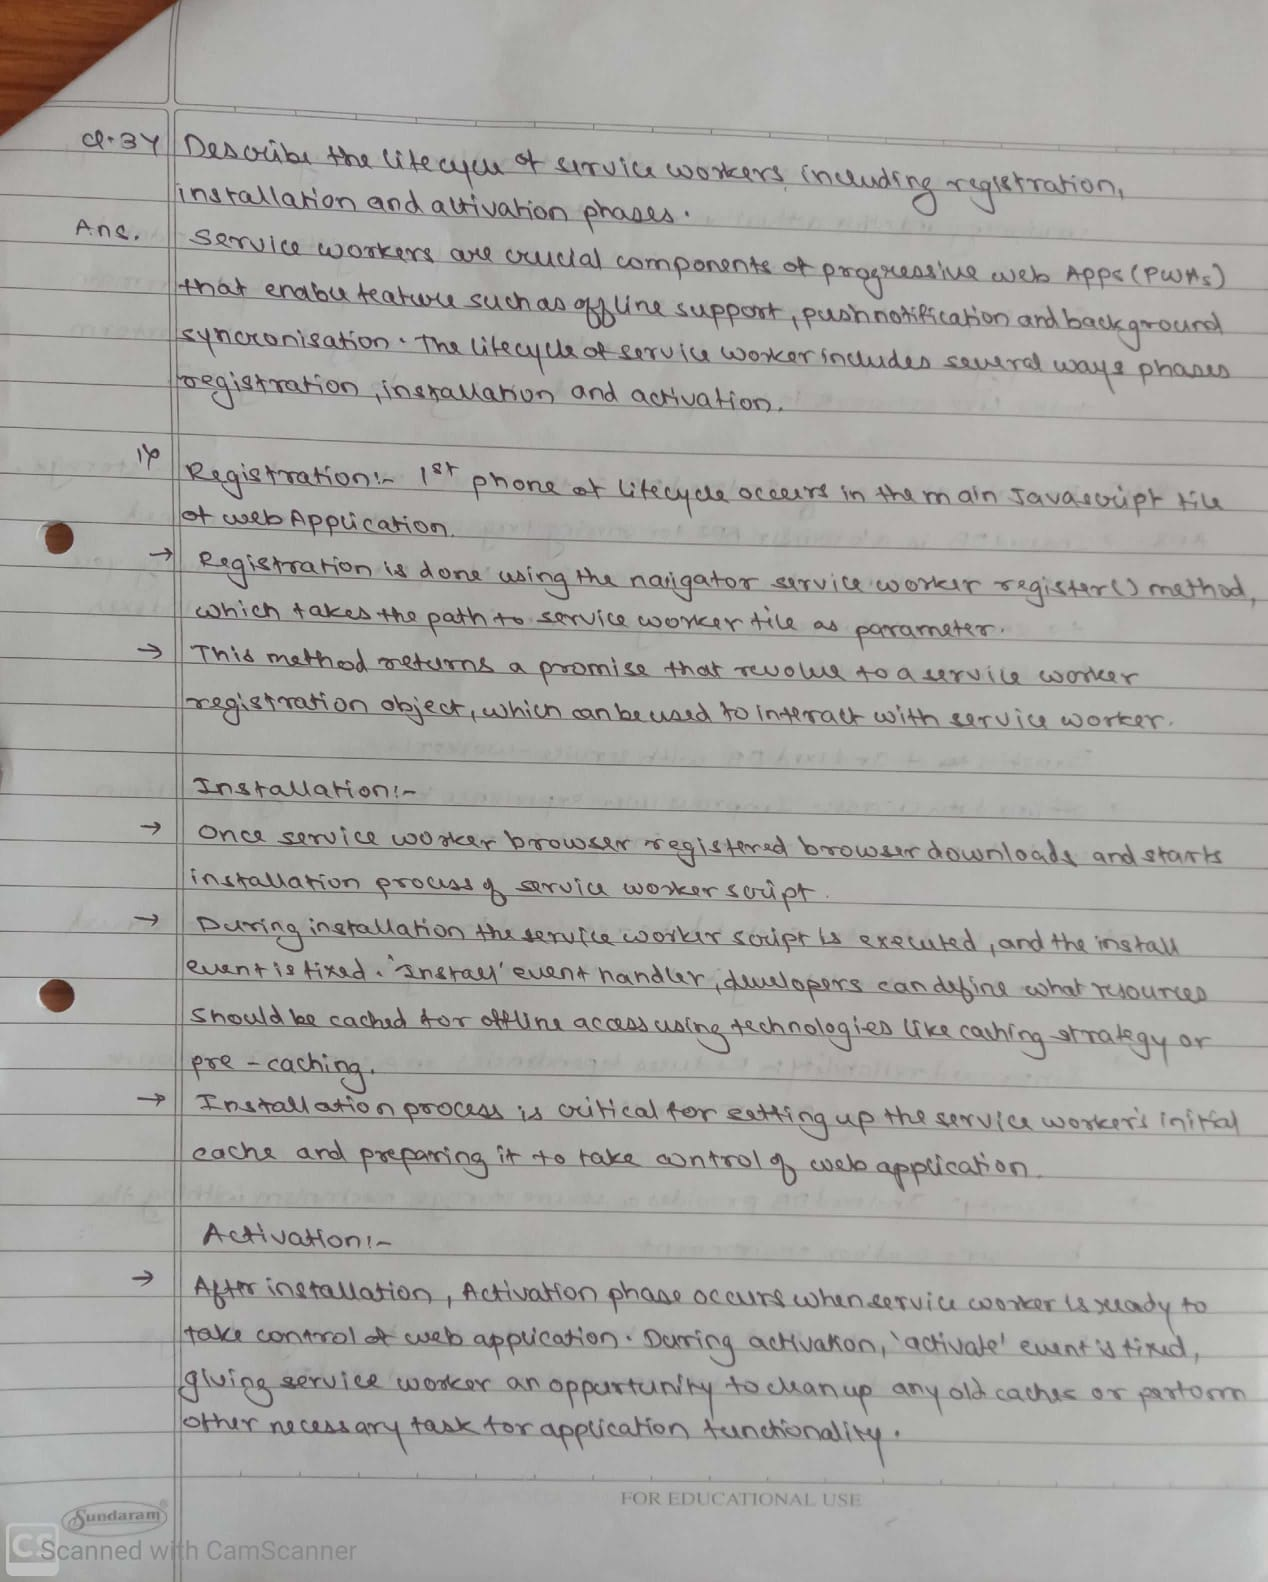 Q.3Y Describe the lifecycle of service workers, including registration,
installation and activation phases.
Ans. Service workers are crucial components of progressive web Apps (PWAs)
that enable feature such as offline support, push notification and background
syncronisation. The lifecycle of service worker includes several ways phases
registration, installation and activation.
1) Registration:- 1st phone of lifecycle occurs in the main Javascript file
of web Application.
→ Registration is done using the navigator service worker register() method,
which takes the path to service worker file as parameter.
→ This method returns a promise that revolve to a service worker
registration object, which can be used to interact with service worker.
Installation:-
→ Once service worker browser registered browser downloads and starts
installation process of service worker script.
→ During installation the service worker script is executed, and the install
event is fired. 'Install' event handler, developers can define what resources
should be cached for offline access using technologies like caching strategy or
pre-caching.
→ Installation process is critical for setting up the service worker's initial
cache and preparing it to take control of web application.
Activation:-
→ After installation, Activation phase occurs when service worker is ready to
take control of web application. During activation, 'activate' event is fired,
giving service worker an oppurtunity to clean up any old caches or perform
other necessary task for application functionality.
FOR EDUCATIONAL USE
Sundaram
CS Scanned with CamScanner